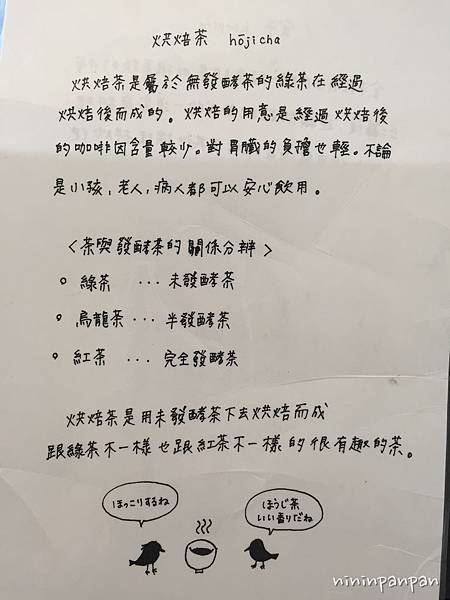 烘焙茶 hōjicha
烘焙茶是屬於無發酵茶的綠茶在經過
烘焙後而成的。烘焙的用意是經過烘焙後
的咖啡因含量較少。對胃臟的負擔也輕。不論
是小孩,老人,病人都可以安心飲用。
<茶與發酵茶的關係分辨>
○ 綠茶 ... 未發酵茶
○ 烏龍茶 ... 半發酵茶
○ 紅茶 ... 完全發酵茶
烘焙茶是用未發酵茶下去烘焙而成
跟綠茶不一樣也跟紅茶不一樣的很有趣的茶。
ほっこりするね
ほうじ茶
いい香りだね
nininpanpan